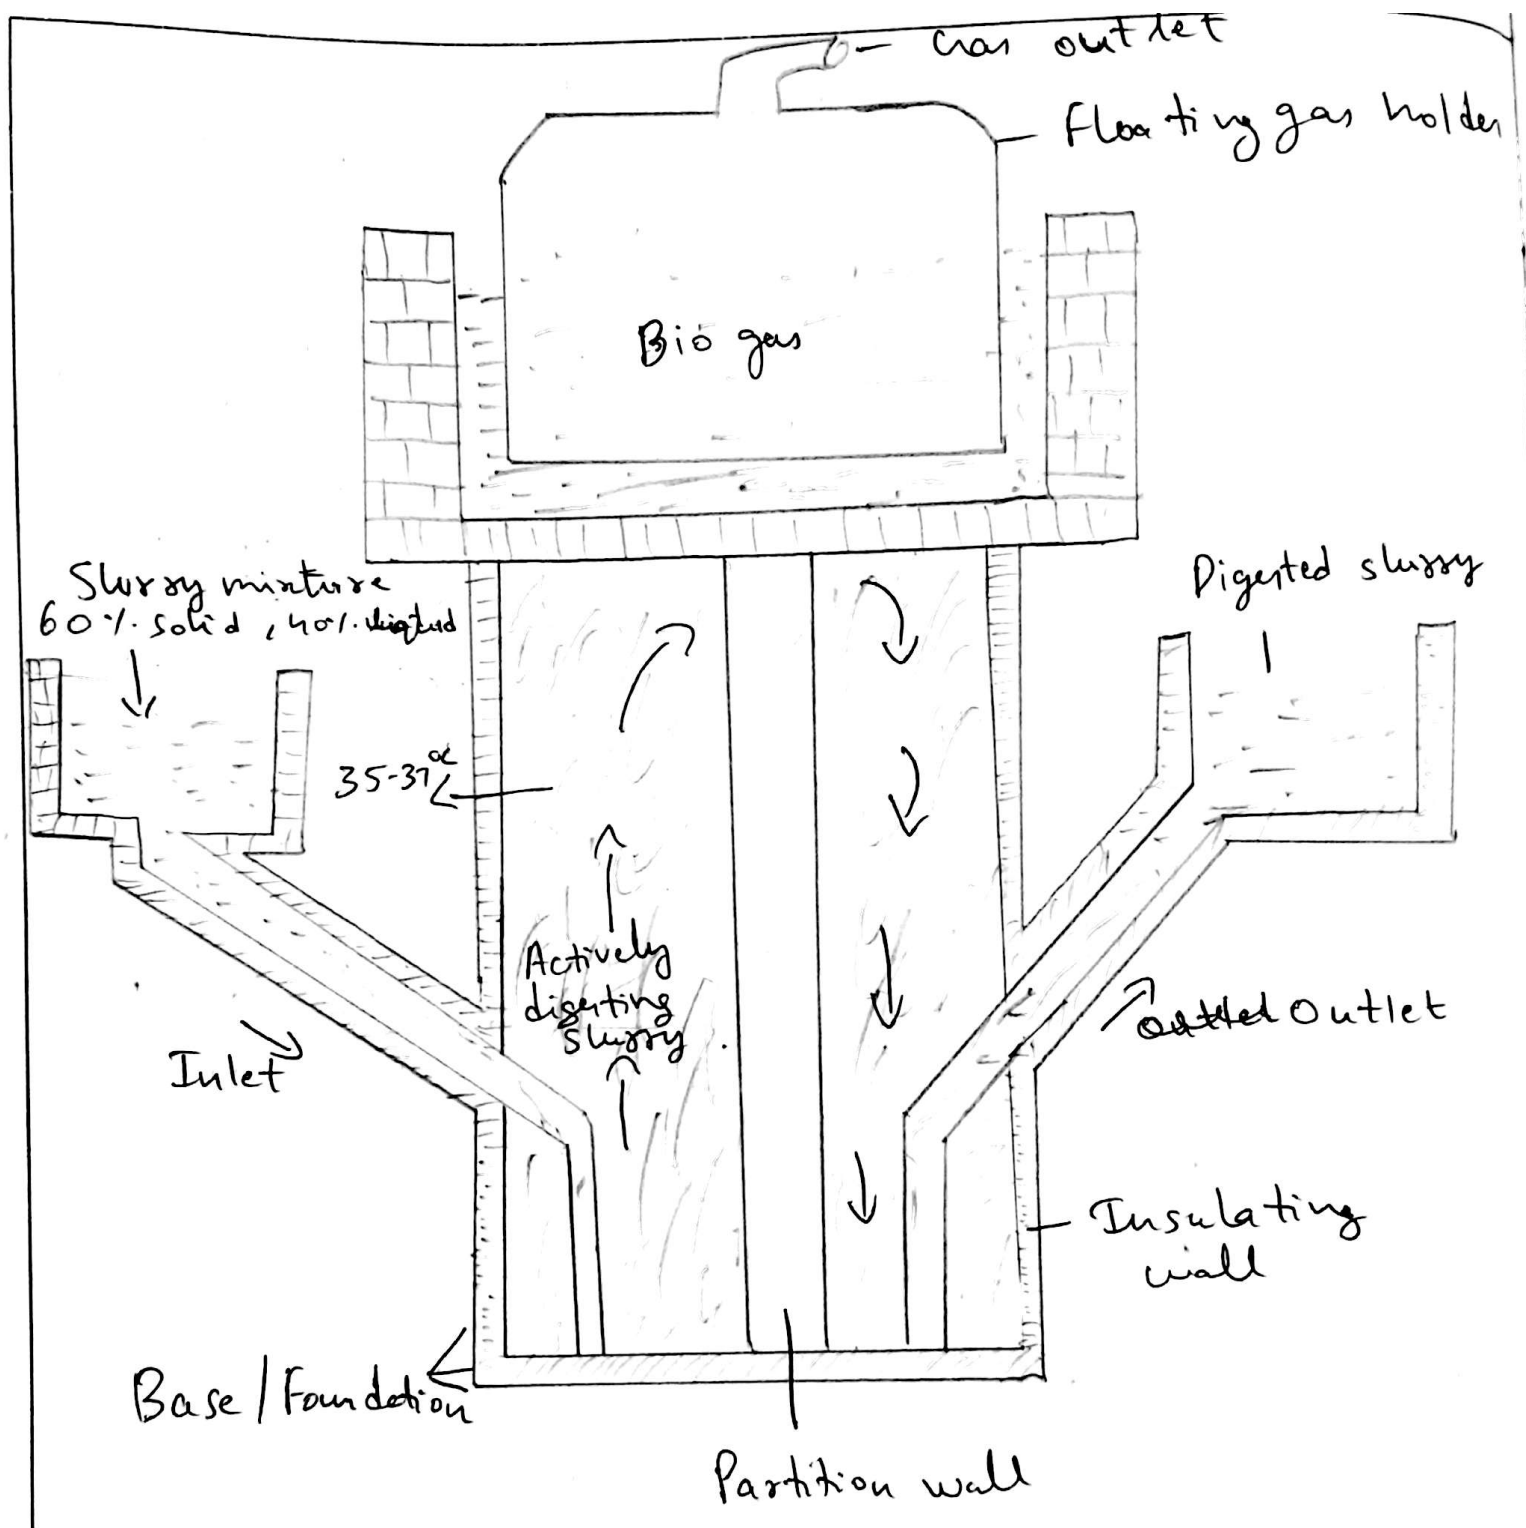 Gas outlet
Floating gas holder
Bio gas
Slurry mixture
60% solid, 40% liqtud
Digested slurry
35-37°C
Actively
digesting
slurry
Inlet
Outlet
Insulating
wall
Base/Foundation
Partition wall